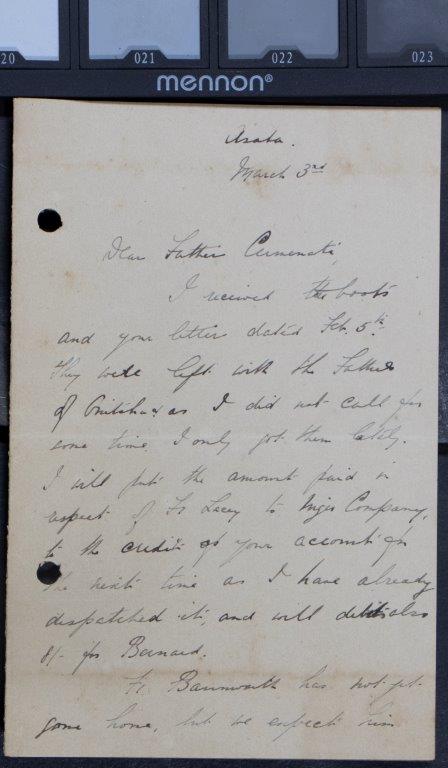 20
021
022
023
mennon®
Asaba.
March 3rd
Dear Father Cermenati,
I received the boots
and your letter dated Feb. 5th.
They were left with the Fathers
of Onitsha & as I did not call for
some time, I only got them lately.
I will put the amount paid in
respect of Fr Lacey to Niger Company,
to the credit of your account for
the next time as I have already
dispatched it, and will debit also
8/- for Bernard.
Fr. has not yet
gone home, but we expect him